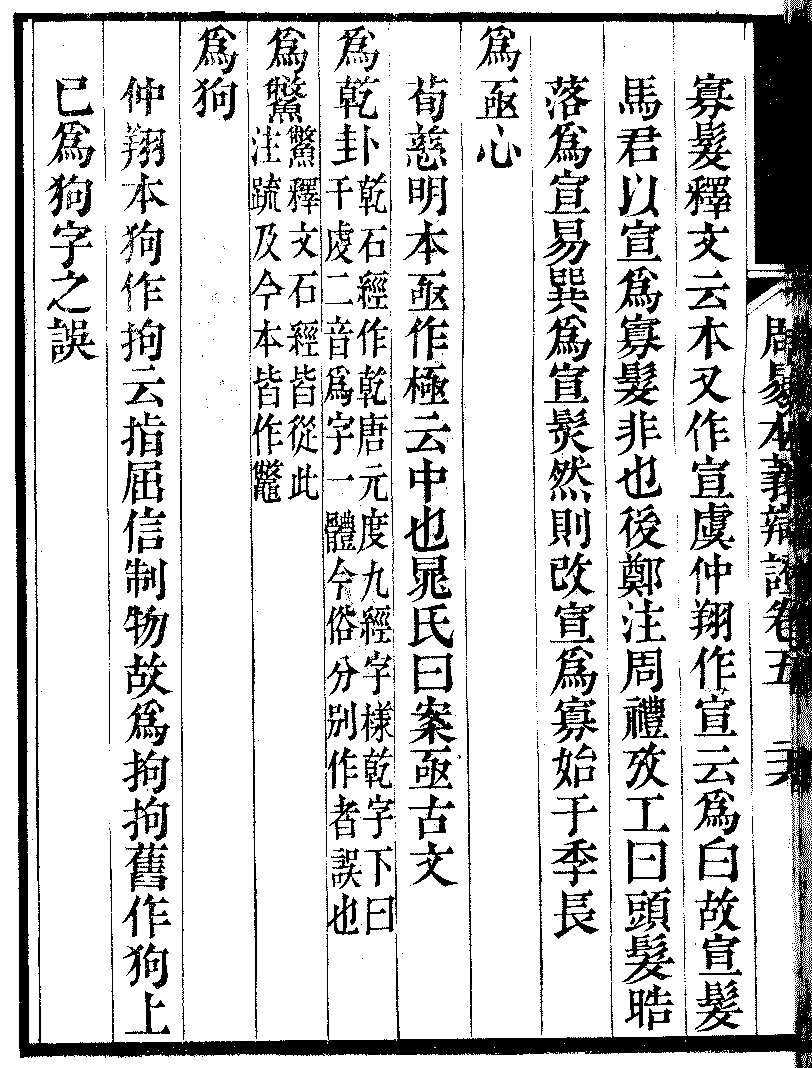 周易本義辯證卷五
寡髮釋文云本又作宣虞仲翔作宣云爲白故宣髮
馬君以宣爲寡髮非也後鄭注周禮攷工曰頭髮晧
落爲宣易巽爲宣髮然則改宣爲寡始于季長
爲亟心
荀慈明本亟作極云中也晁氏曰案亟古文
爲乾卦乾石經作乾唐元度九經字樣乾字下曰
干虔二音爲字一體今俗分別作者誤也
爲鱉鱉釋文石經皆從此
注疏及今本皆作鼈
爲狗
仲翔本狗作拘云指屈信制物故爲拘拘舊作狗上
已爲狗字之誤